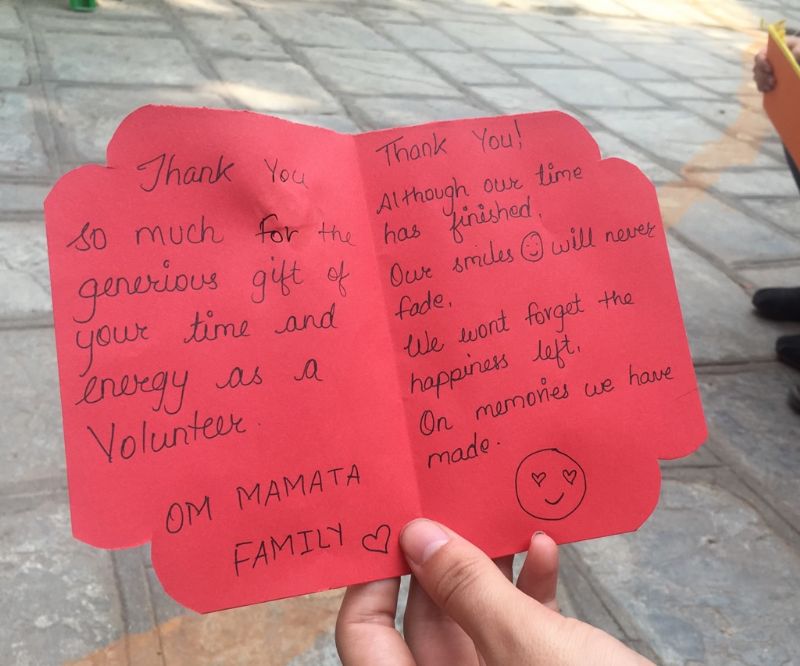 Thank You
so much for the
generious gift of
your time and
energy as a
Volunteer.
OM MAMATA
FAMILY
Thank You!
Although our time
has finished,
Our smiles will never
fade,
We wont forget the
happiness left,
On memories we have
made.